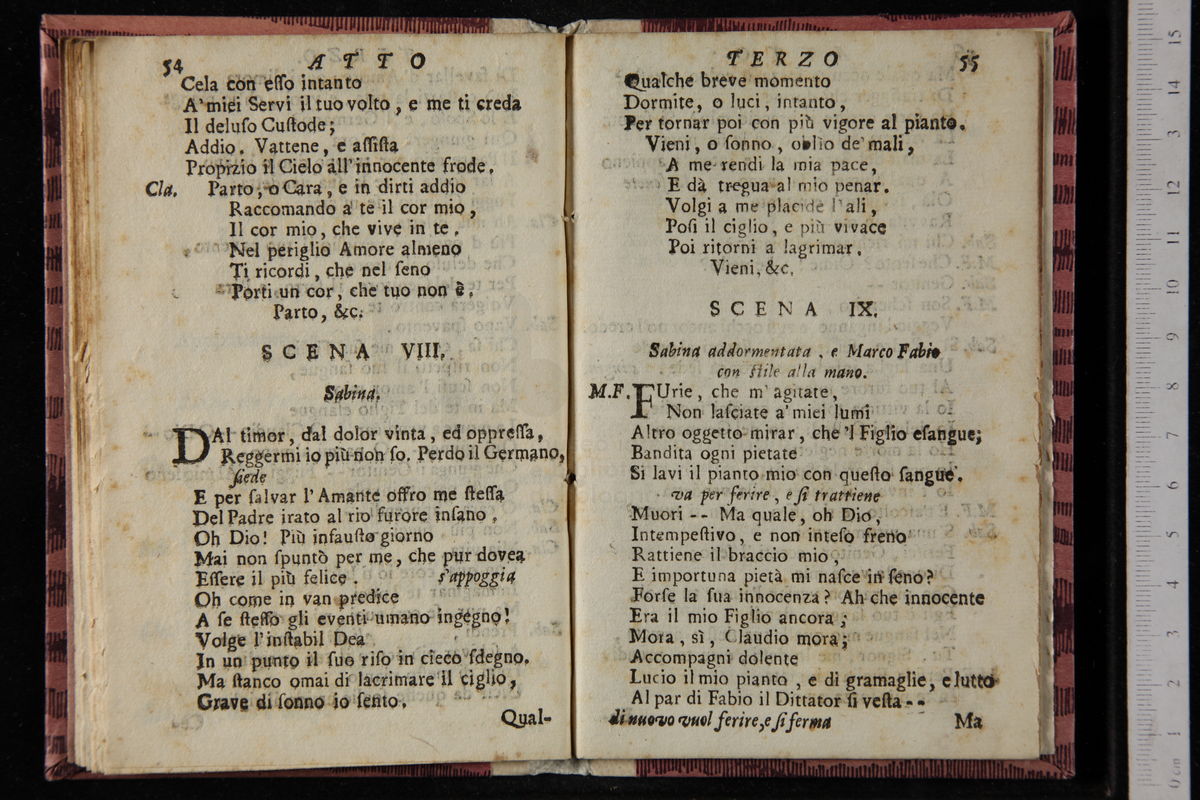 54 ATTO
Cela con eſſo intanto
A' miei Servi il tuo volto, e me ti creda
Il deluſo Cuſtode;
Addio. Vattene, e aſſiſta
Propizio il Cielo all' innocente frode.
Cla. Parto, o Cara, e in dirti addio
Raccomando a te il cor mio,
Il cor mio, che vive in te.
Nel periglio Amore almeno
Ti ricordi, che nel ſeno
Porti un cor, che tuo non è.
Parto, &c.
SCENA VIII.
Sabina.
DAl timor, dal dolor vinta, ed oppreſſa,
Reggermi io più non ſo. Perdo il Germano,
ſiede
E per ſalvar l'Amante offro me ſteſſa
Del Padre irato al rio furore inſano.
Oh Dio! Più infauſto giorno
Mai non ſpuntò per me, che pur dovea
Eſſere il più felice. s'appoggia
Oh come in van predice
A ſe ſteſſo gli eventi umano ingegno!
Volge l'inſtabil Dea
In un punto il ſuo riſo in cieco ſdegno.
Ma ſtanco omai di lacrimare il ciglio,
Grave di ſonno io ſento.
Qual-
TERZO 55
Qualche breve momento
Dormite, o luci, intanto,
Per tornar poi con più vigore al pianto.
Vieni, o ſonno, oblìo de' mali,
A me rendi la mia pace,
E dà tregua al mio penar.
Volgi a me placide l'ali,
Poſi il ciglio, e più vivace
Poi ritorni a lagrimar.
Vieni, &c.
SCENA IX.
Sabina addormentata, e Marco Fabio
con ſtile alla mano.
M.F. FUrie, che m' agitate,
Non laſciate a' miei lumi
Altro oggetto mirar, che 'l Figlio eſangue;
Bandita ogni pietate
Si lavi il pianto mio con queſto ſangue.
va per ferire, e ſi trattiene
Muori -- Ma quale, oh Dio,
Intempeſtivo, e non inteſo freno
Rattiene il braccio mio,
E importuna pietà mi naſce in ſeno?
Forſe la ſua innocenza? Ah che innocente
Era il mio Figlio ancora;
Mora, sì, Claudio mora;
Accompagni dolente
Lucio il mio pianto, e di gramaglie, e lutto
Al par di Fabio il Dittator ſi veſta --
di nuovo vuol ferire, e ſi ferma Ma
0 cm 1 2 3 4 5 6 7 8 9 10 11 12 13 14 15